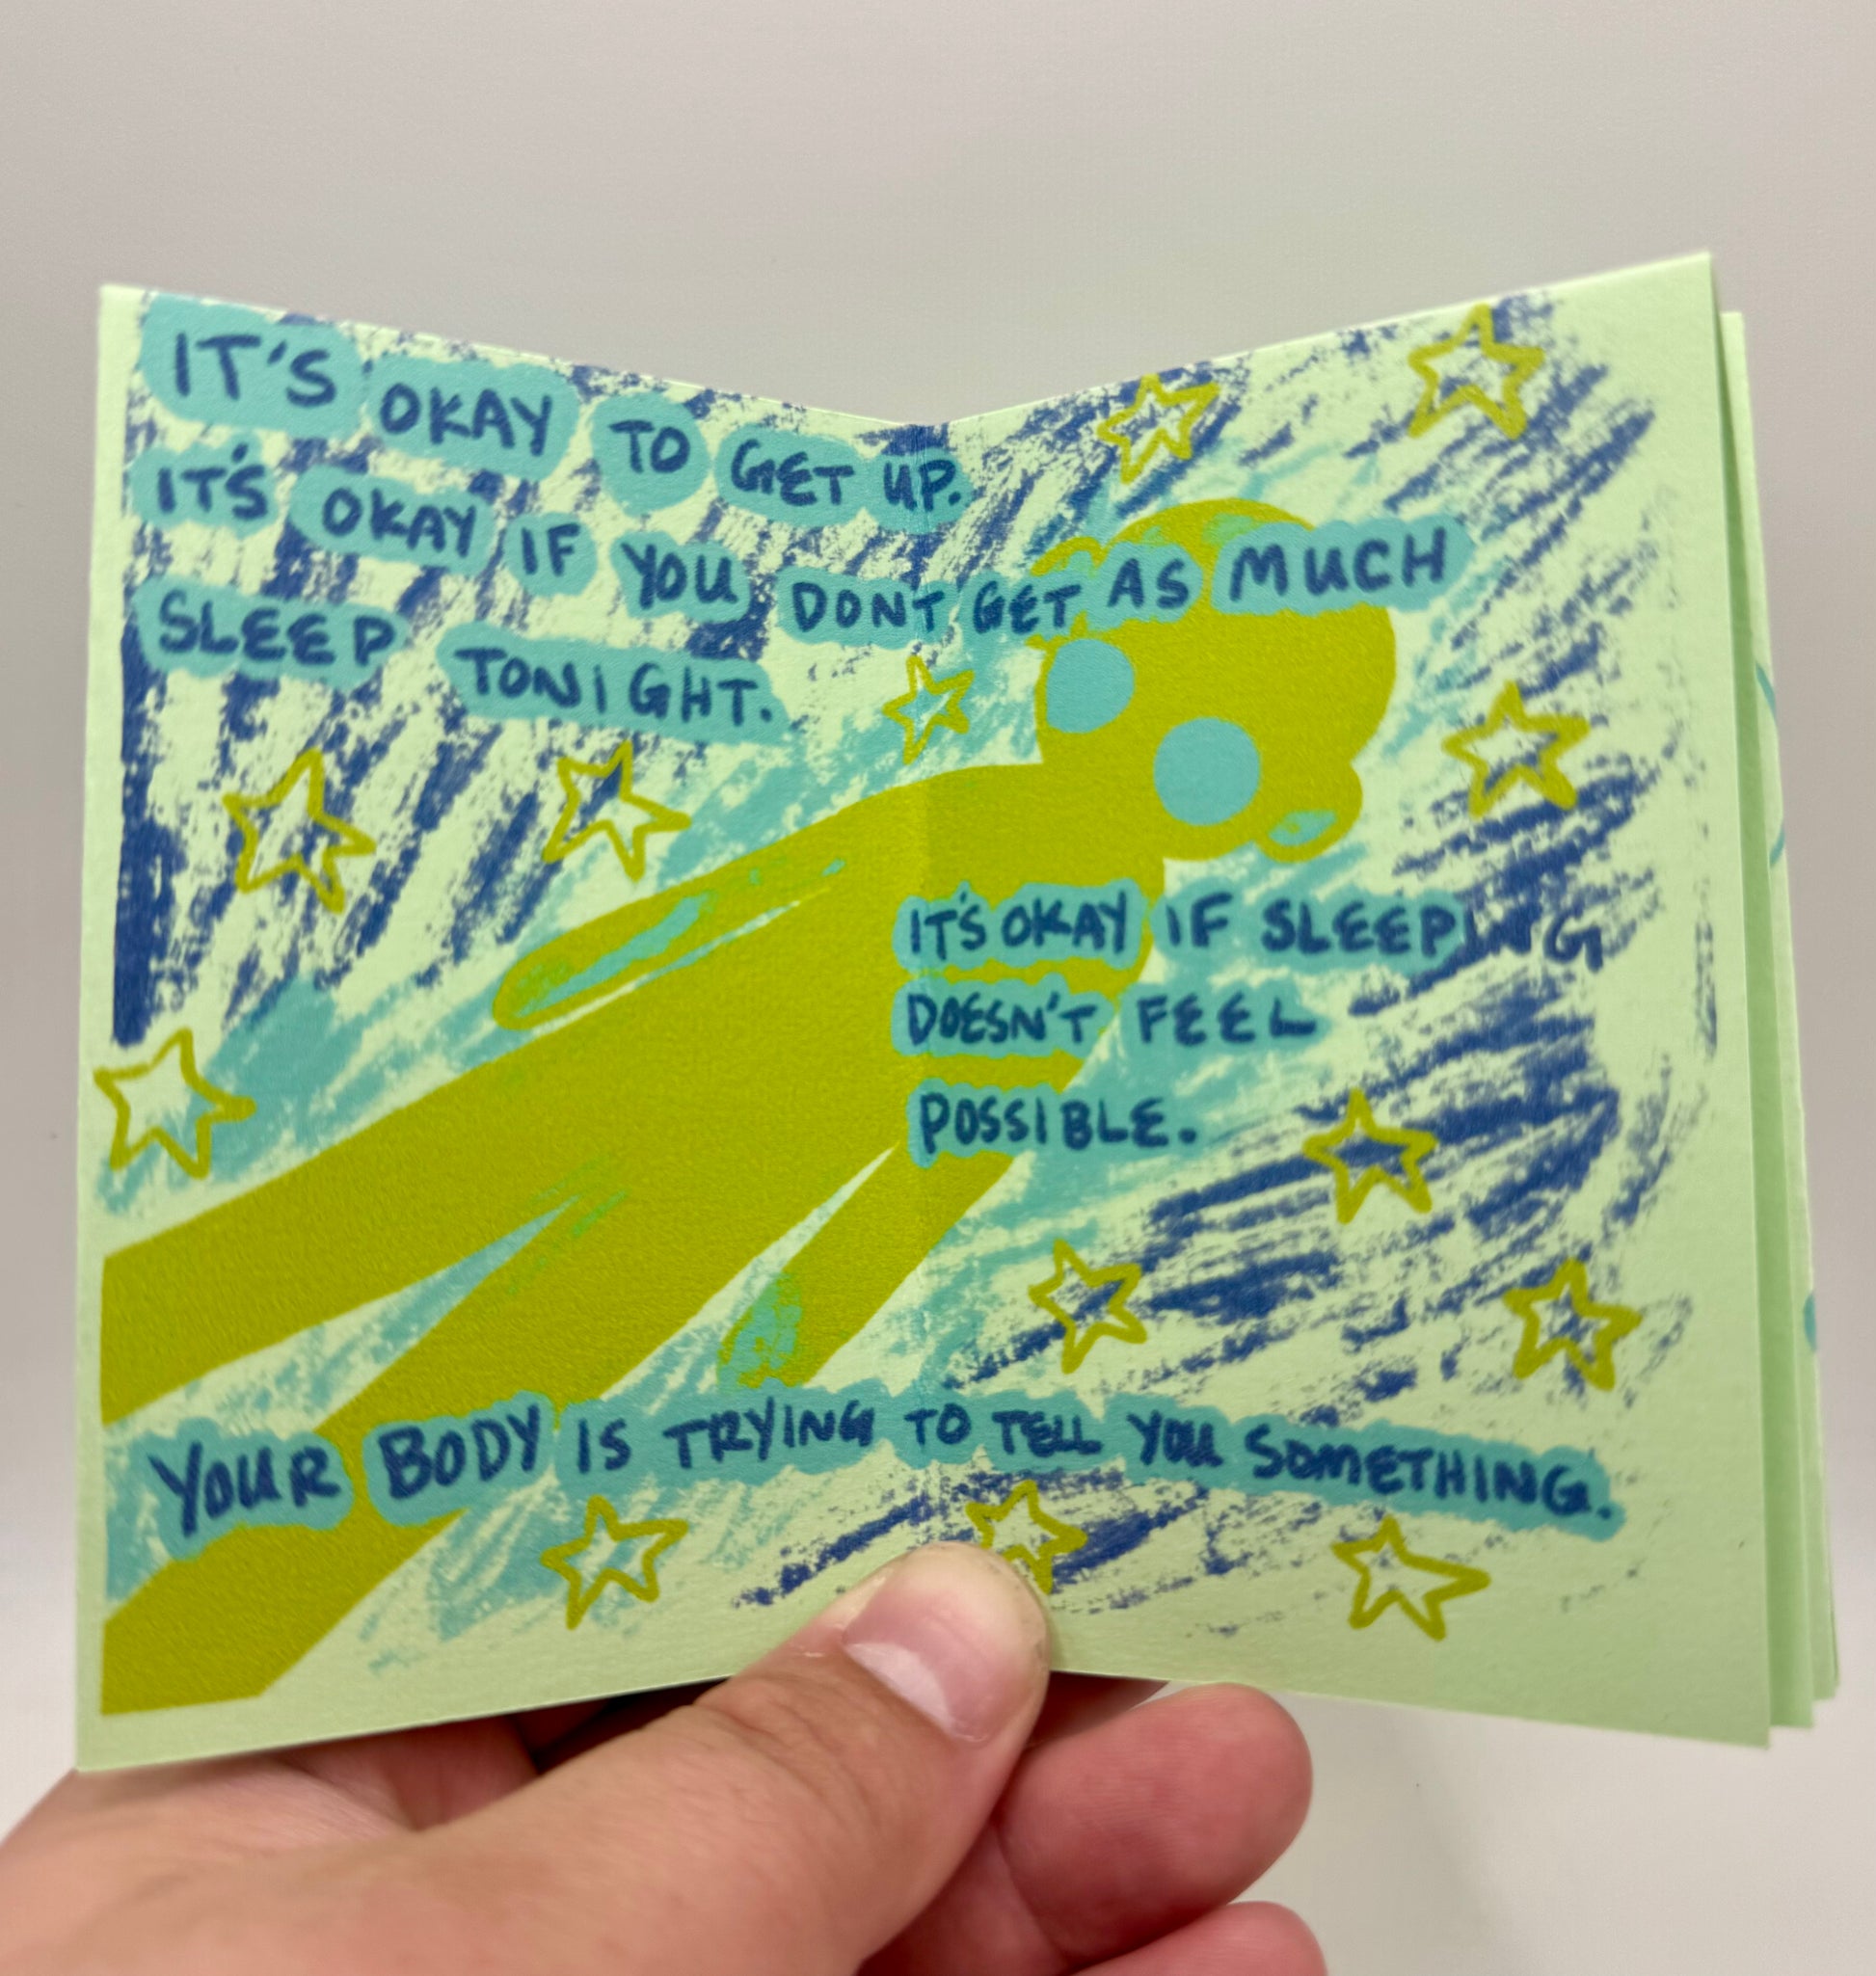 IT'S OKAY TO GET UP.
IT'S OKAY IF YOU DONT GET AS MUCH
SLEEP TONIGHT.
IT'S OKAY IF SLEEPING
DOESN'T FEEL
POSSIBLE.
YOUR BODY IS TRYING TO TELL YOU SOMETHING.